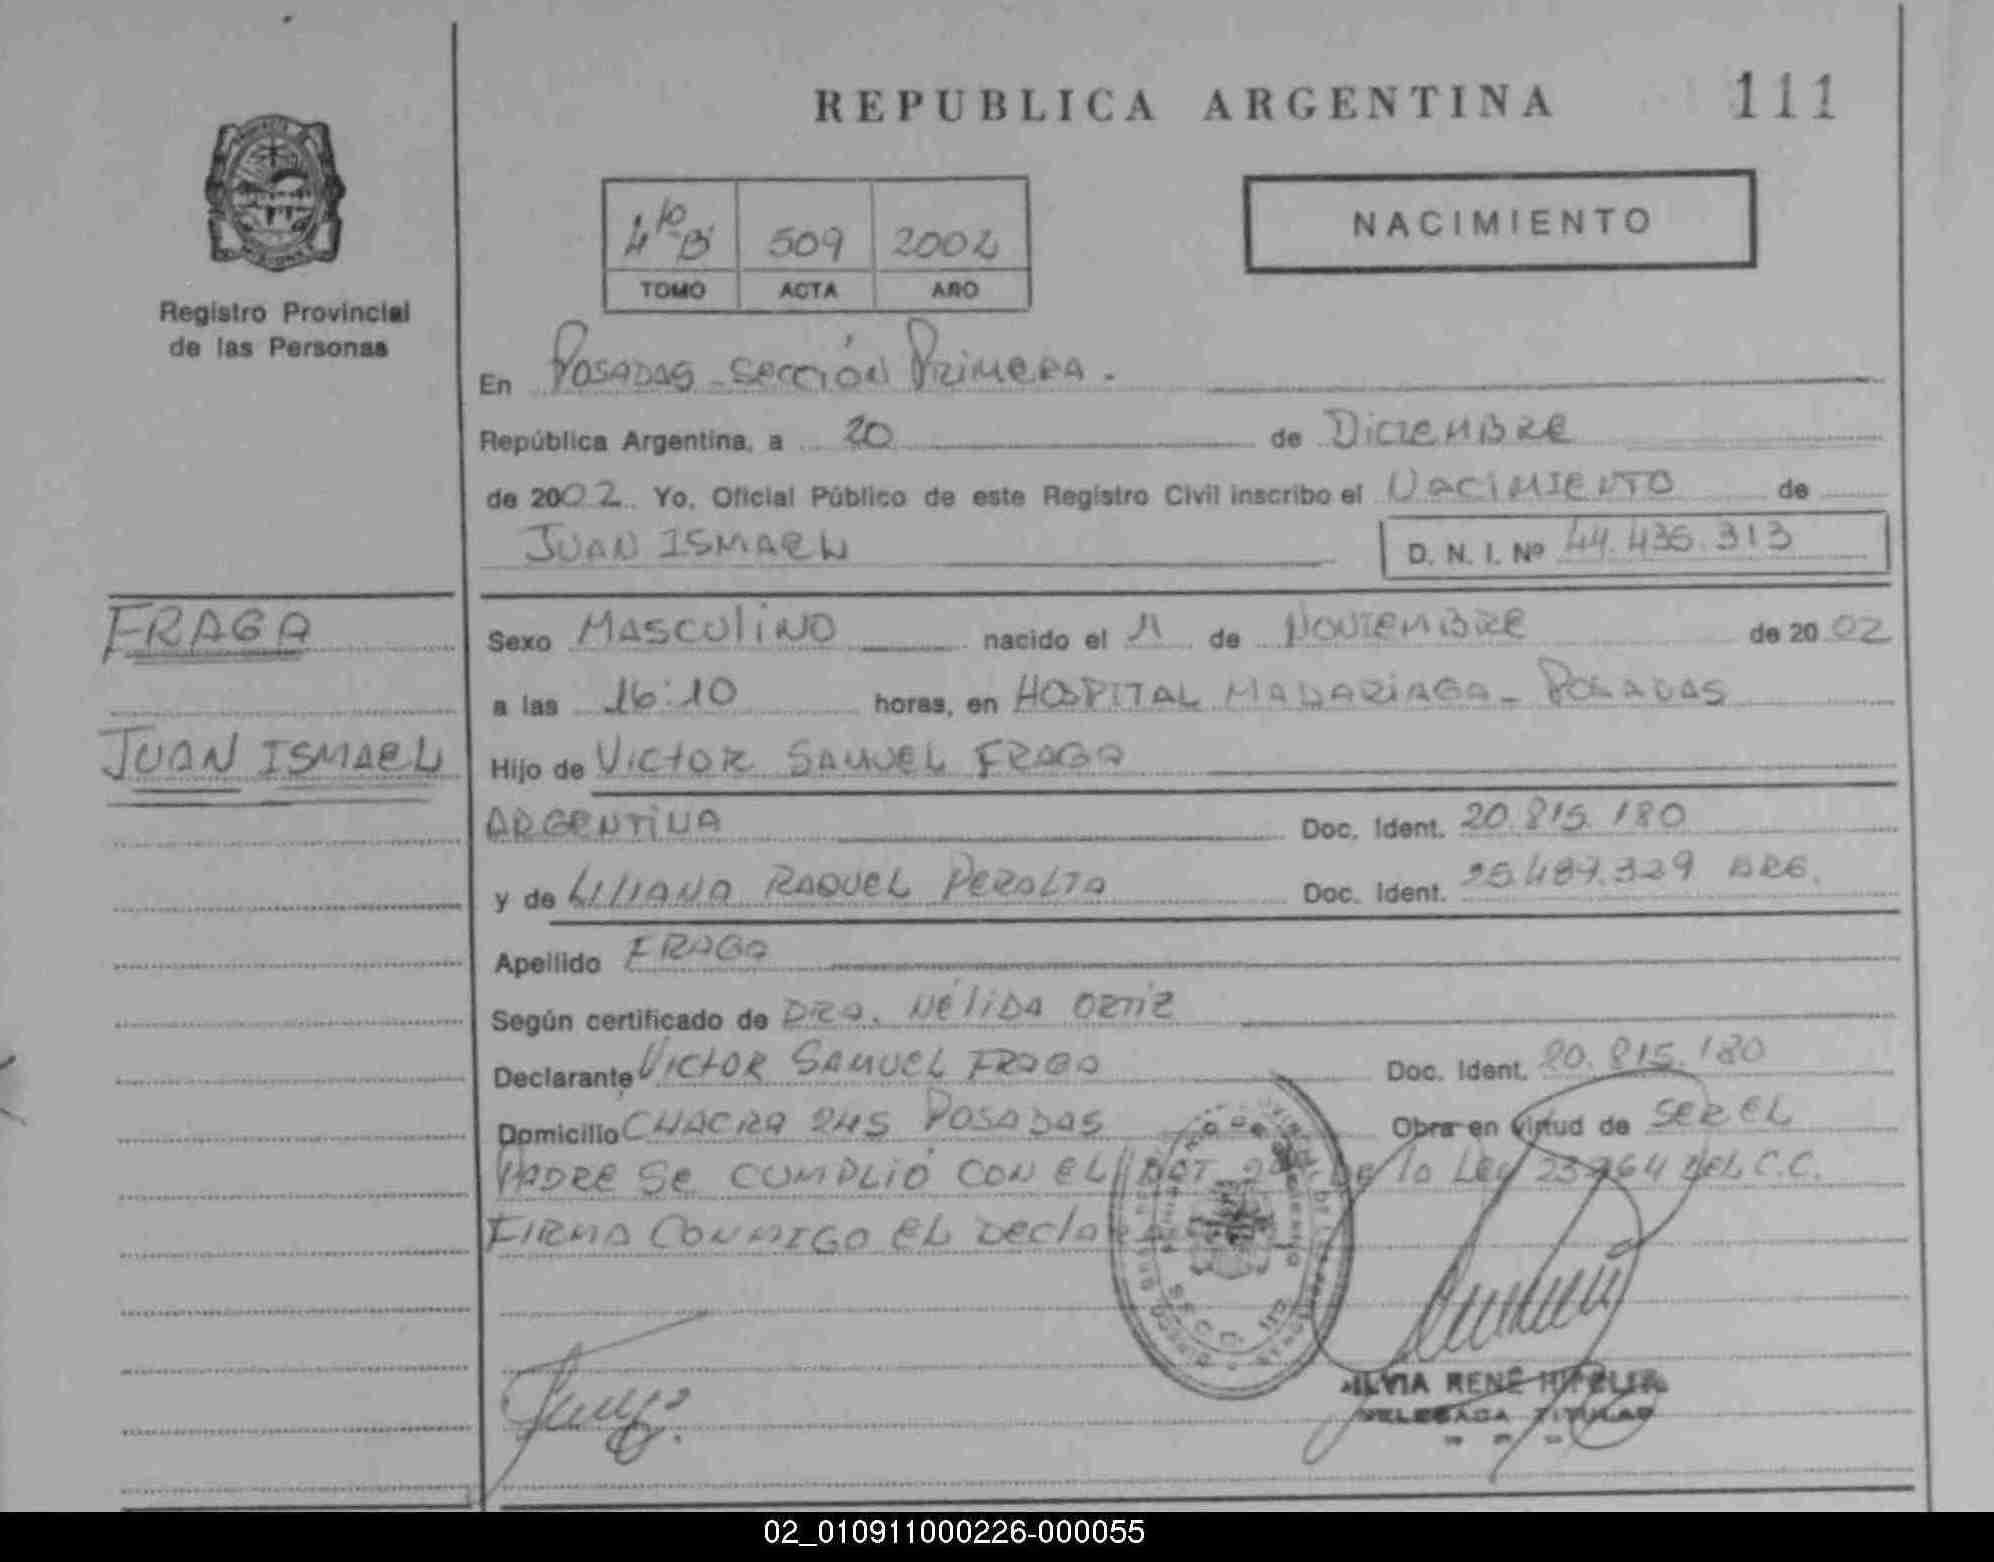 REPUBLICA ARGENTINA 111
NACIMIENTO
4to B 509 2002
TOMO ACTA AÑO
Registro Provincial
de las Personas
En POSADAS - SECCIÓN PRIMERA.
República Argentina, a 20 de DICIEMBRE
de 2002. Yo, Oficial Público de este Registro Civil inscribo el NACIMIENTO de
JUAN ISMAEL D. N. I. Nº 44.436.313
FRAGA
JUAN ISMAEL
Sexo MASCULINO nacido el 11 de NOVIEMBRE de 2002
a las 16:10 horas, en HOSPITAL MADARIAGA - POSADAS
Hijo de VICTOR SAMUEL FRAGA
ARGENTINA Doc. Ident. 20.815.180
y de LILIANA RAQUEL PERALTA Doc. Ident. 25.487.329 ARG.
Apellido FRAGA
Según certificado de DRA. NÉLIDA ORTIZ
Declarante VICTOR SAMUEL FRAGA Doc. Ident. 20.815.180
Domicilio CHACRA 245 POSADAS Obra en virtud de SER EL
PADRE SE CUMPLIÓ CON EL ART. de la Ley 23264 DEL C.C.
FIRMA CONMIGO EL
SILVIA RENÉ
DELEGADA TITULAR
02_010911000226-000055